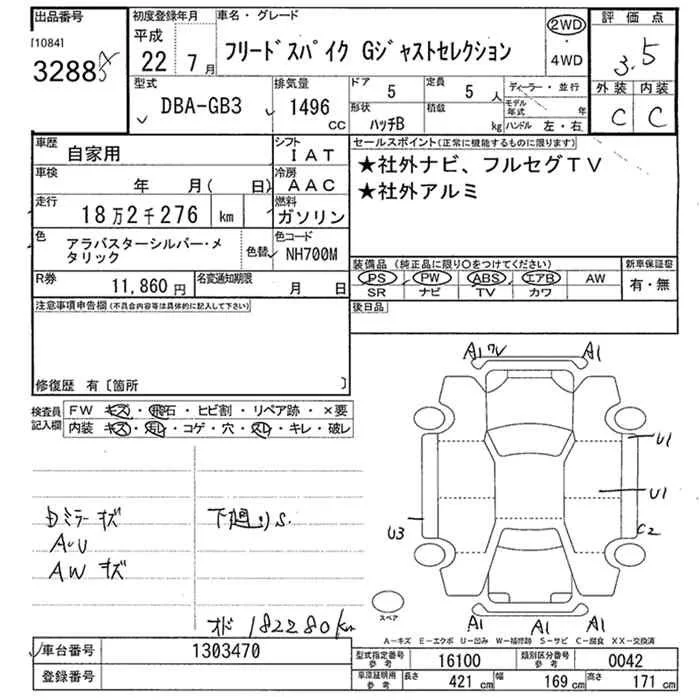 出品番号
[1084]
3288
初度登録年月
平成
22年 7月
車名・グレード
フリードスパイク Gジャストセレクション
2WD
・
4WD
評価点
3.5
外装 内装
C C
型式
DBA-GB3
排気量
1496
CC
ドア
5
定員
5人
形状
ハッチB
積載
kg
ディーラー・並行
モデル年式 年
ハンドル 左・右
車歴
自家用
シフト
IAT
車検
年 月( 日)
冷房
AAC
走行
18万2千276 km
燃料
ガソリン
色
アラバスターシルバー・メタリック
色替
色コード
NH700M
R券
11,860円
名変通知期限
月 日
セールスポイント(正常に機能するものに限ります)
★社外ナビ、フルセグTV
★社外アルミ
装備品(純正品に限り○をつけてください)
PS PW ABS エアB AW
SR ナビ TV カワ
新車保証書
有・無
後日品
注意事項申告欄(不具合内容等は具体的に記入して下さい)
修復歴 有〔箇所 〕
検査員記入欄
FW キズ・飛石・ヒビ割・リペア跡・×要
内装 キズ・モレ・コゲ・穴・スレ・キレ・破レ
ミラー キズ
A・U
AW キズ
下廻り S.
オド 182280km
A1 ワレ A1
U1
U1
U3
C2
スペア
A1 A1 A1
A-キズ E-エクボ U-凹み W-補修跡 S-サビ C-腐食 XX-交換済
車台番号
1303470
登録番号
型式指定番号
参考
16100
類別区分番号
参考
0042
車両証明用
参考
長さ 421 cm 幅 169 cm 高さ 171 cm